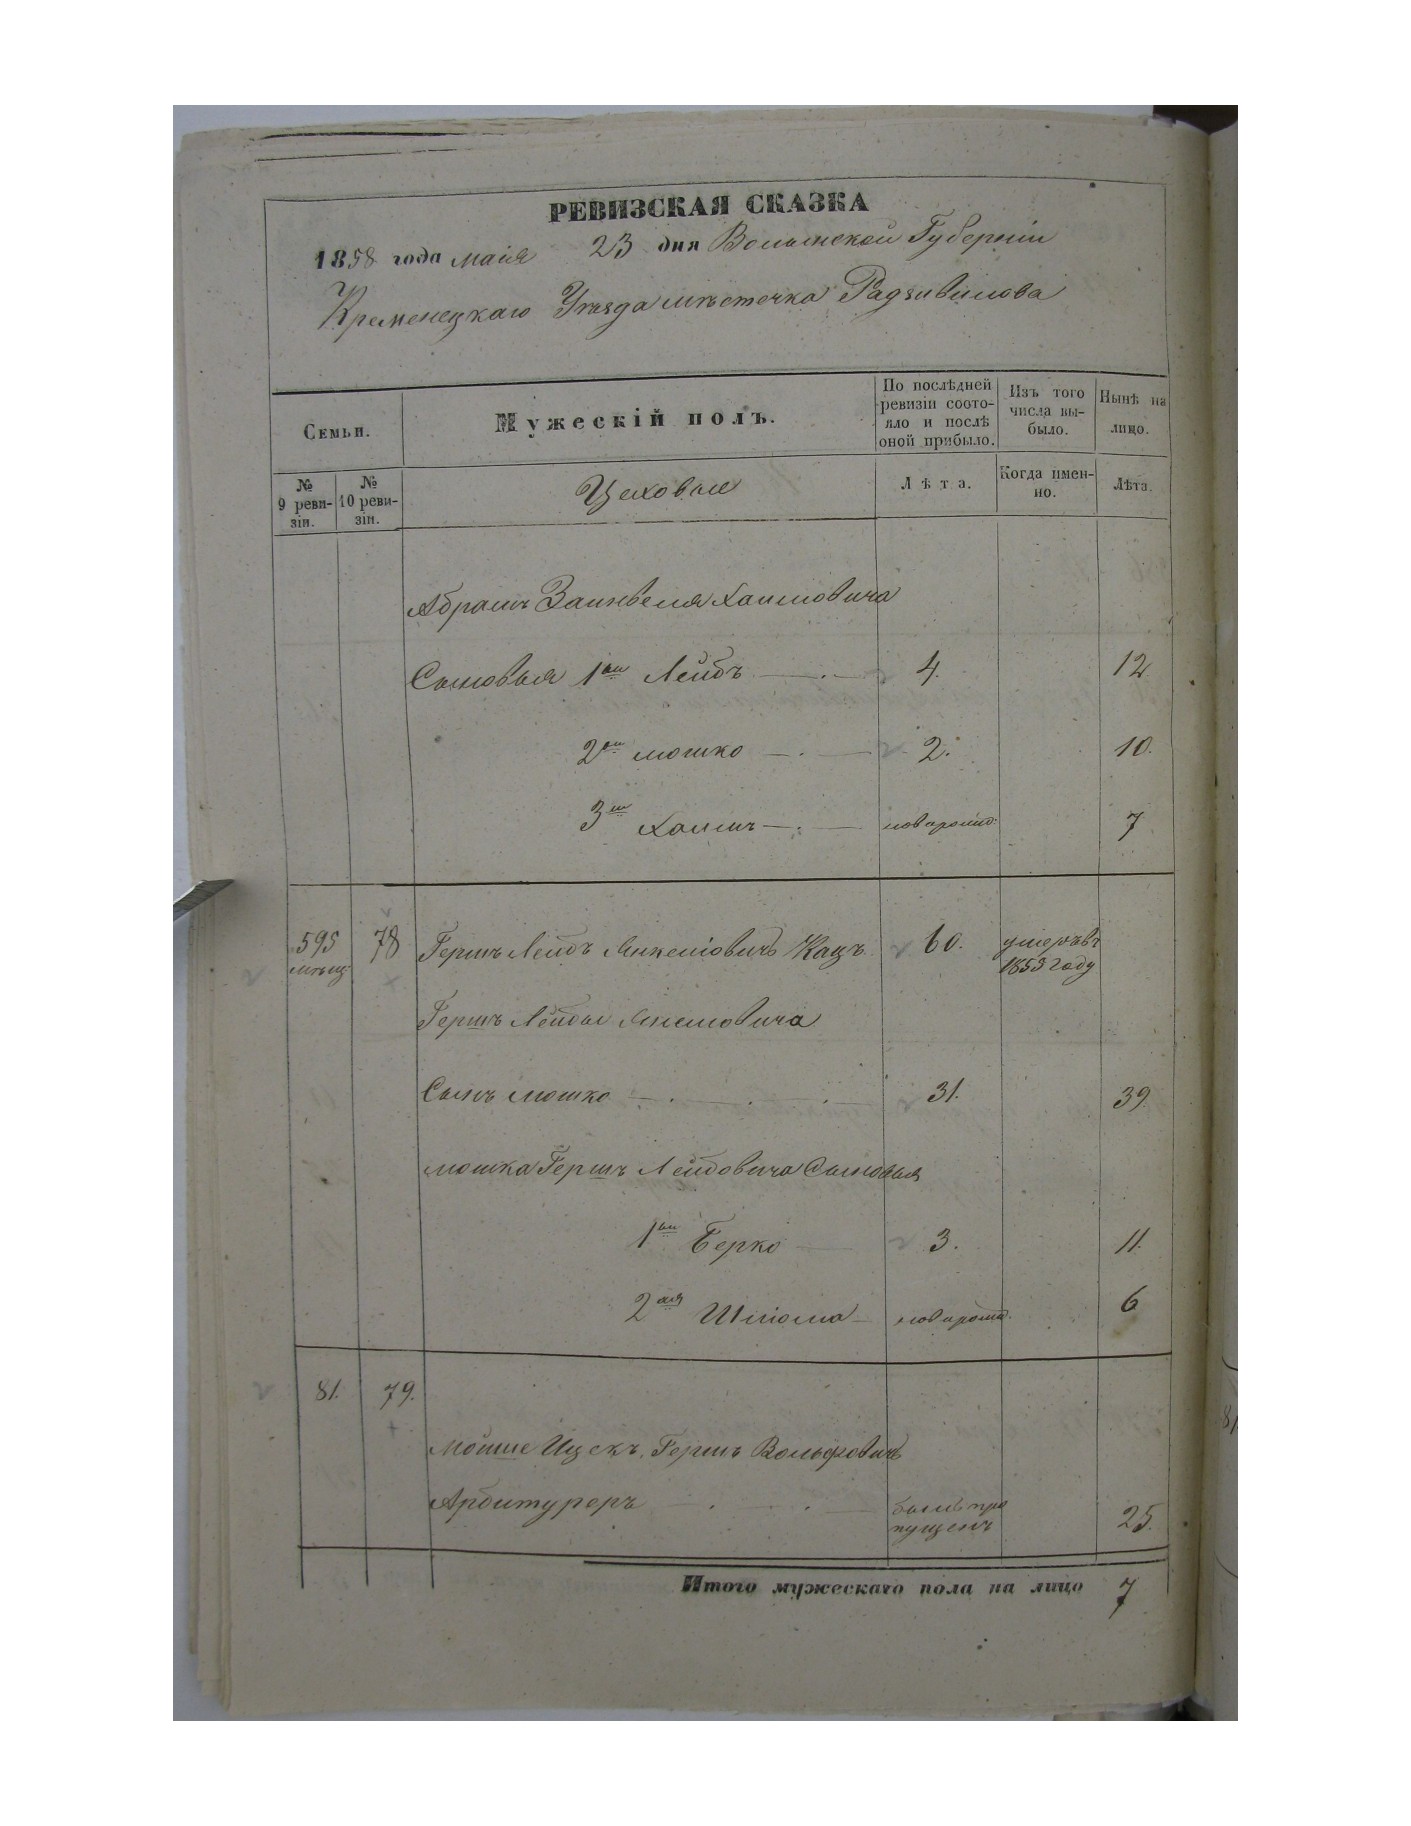 РЕВИЗСКАЯ СКАЗКА
1858 года маія 23 дня Волынской Губерніи
Кременецкаго Уѣзда мѣстечка Радзивилова
Семьи.
Мужескій полъ.
По послѣдней ревизіи состо-
яло и послѣ оной прибыло.
Изъ того числа вы-
было.
Нынѣ на лицо.
№ 9 реви-
зіи.
№ 10 реви-
зіи.
Цеховые
Лѣта.
Когда имен-
но.
Лѣта.
Абрамъ Занвеля Хаимовича
Сыновья 1ый Лейбъ 4. 12
2ой мошко 2. 10.
3ій Хаимъ новорожд. 7
595 мѣщ. 78 Гершъ Лейбъ Янкеліовичъ Кацъ 60. умеръ въ
1853 году
Гершъ Лейбы Янкелювича
Сынъ мошко 31. 39.
мошка Гершъ Лейбовича Сыновья
1ый Берко 3. 11.
2ой Шліома новорожд. 6
81. 79.
мойше Ицекъ Гершъ Вольфовичъ
Арбитуреръ былъ про
пущенъ 25.
Итого мужескаго пола на лицо 7